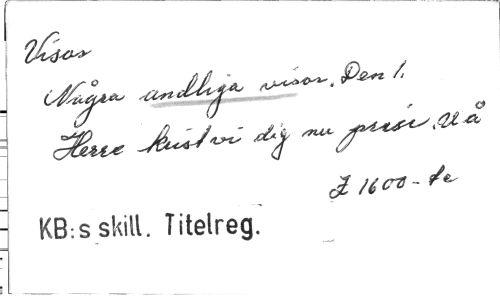 Visor
Några andliga visor. Den 1.
Herre krist vi dig nu prisi. U å
1600-
KB:s skill. Titelreg.